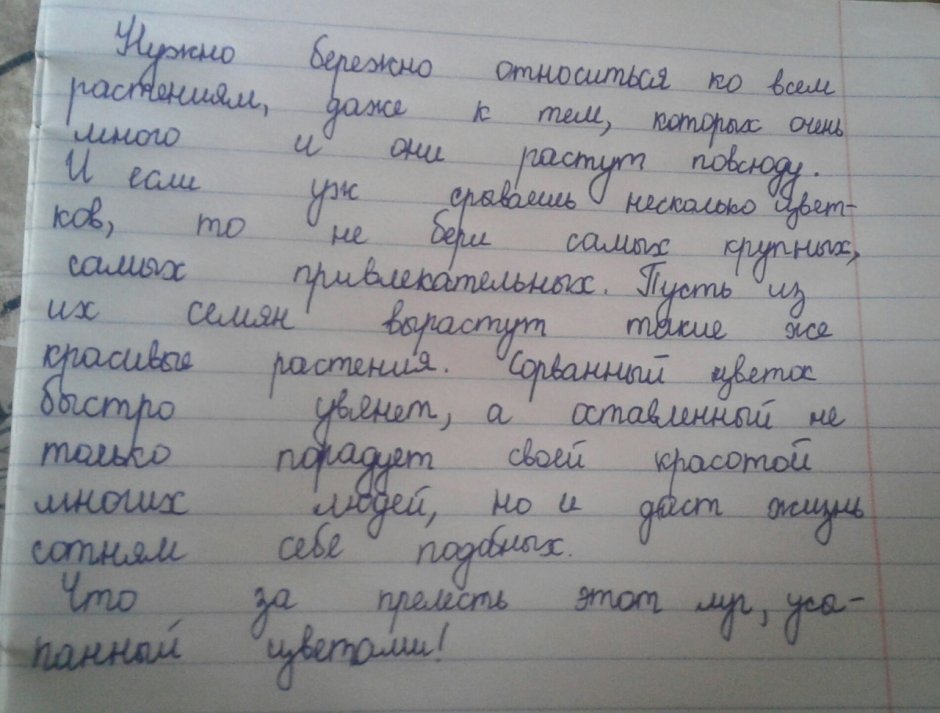 Нужно бережно относиться ко всем
растениям, даже к тем, которых очень
много и они растут повсюду.
И если уж срываешь несколько цвет-
ков, то не бери самых крупных,
самых привлекательных. Пусть из
их семян вырастут такие же
красивые растения. Сорванный цветок
быстро увянет, а оставленный не
только порадует своей красотой
многих людей, но и даст жизнь
сотням себе подобных.
Что за прелесть этот луг, уса-
панный цветами!